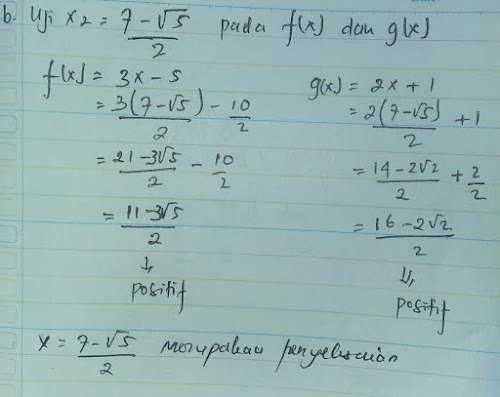 b. Uji x2 = (7 - √5)/2 pada f(x) dan g(x)
f(x) = 3x - 5
= 3(7 - √5)/2 - 10/2
= (21 - 3√5)/2 - 10/2
= (11 - 3√5)/2
↓
positif
g(x) = 2x + 1
= 2(7 - √5)/2 + 1
= (14 - 2√2)/2 + 2/2
= (16 - 2√2)/2
⇓
positif
x = (7 - √5)/2 merupakan penyelesaian